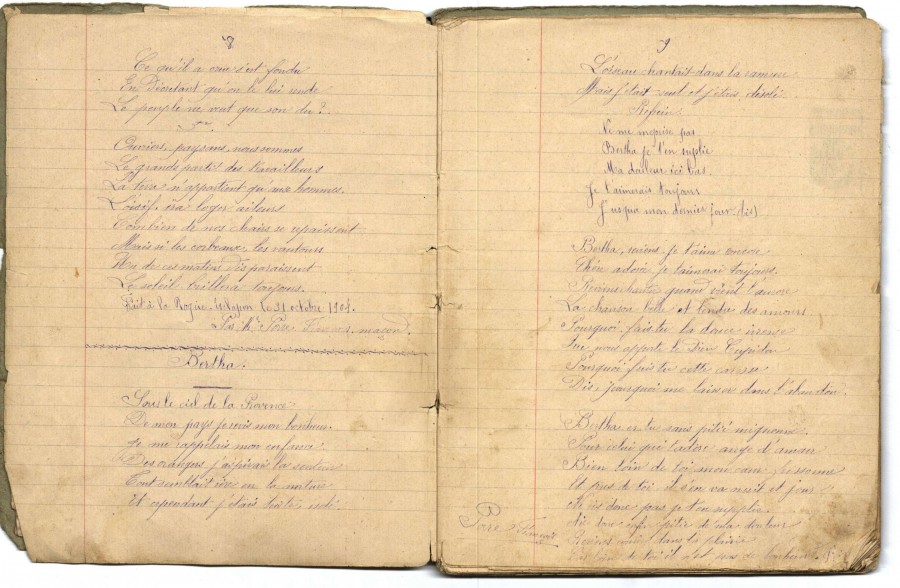 8
Ce qu'il a crée s'est fondu
En Décrétant qu'on le lui rende
Le peuple ne veut que son du ?..
5e
Ouvriers, paysans, nous sommes
Le grand parti des travailleurs
La terre n'appartient qu'aux hommes.
L'oisif ira loger ailleurs
Combien de nos chairs se repaissent
Mais si les corbeaux, les vautours
Un de ces matins disparaissent
Le soleil brillera toujours.
Fait à la le 31 octobre
Par Pore François, maçon
Bertha.
Sous le ciel de la Provence
De mon pays je vois mon bonheur.
Je me rappelais mon enfance
Des orangers j'aspirais la senteur
Tout semblait
Et cependant j'étais triste
9
L'oiseau chantait dans la ramure
Mais j'étais seul et j'étais désolé
Refrain
Ne me méprise pas
Bertha je t'en supplie
Ma douleur ici bas.
Je t'aimerais toujours
Jusqua mon dernier jour (bis)
Bertha, reviens, je t'aime encore
Chère adorée, je t'aimerai toujours,
Reviens chanter quand vient l'aurore
La chanson belle et tendre des amours
Pourquoi fuis tu la douce ivresse
Que nous apporte le Dieu Cupidon
Pourquoi fuis tu cette caresse
Dis, pourquoi me laisser dans l'abandon.
Bertha es tu sans pitié mignonne
Pour celui qui t'adore ange d'amour
Bien loin de toi mon cœur frissonne
Et près de toi, il s'en va nuit et jour
Ne ris donc pas je t'en supplie
Aie donc enfin pitié de ma douleur
dans la
de toi il n'est pas de bonheur.
Pore François